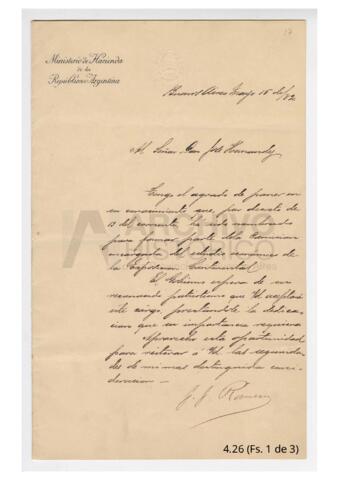 17
Ministerio de Hacienda
de la
República Argentina
Buenos Aires Mayo 15 de/82
Al Señor Don José Hernandez
Tengo el agrado de poner en
su conocimiento que por decreto de
13 del corriente ha sido nombrado
para formar parte de la Comision
encargada del estudio economico de
la Exposicion Continental
El Gobierno espera de su
reconocido patriotismo que Vd. aceptará
este cargo, prestandole la dedica-
cion que su importancia requiere
Aprovecho esta oportunidad
para reiterar á Vd. las segurida-
des de mi mas distinguida consi-
deracion
J. J. Romero
ARCHIVO
HISTÓRICO
4.26 (Fs. 1 de 3)